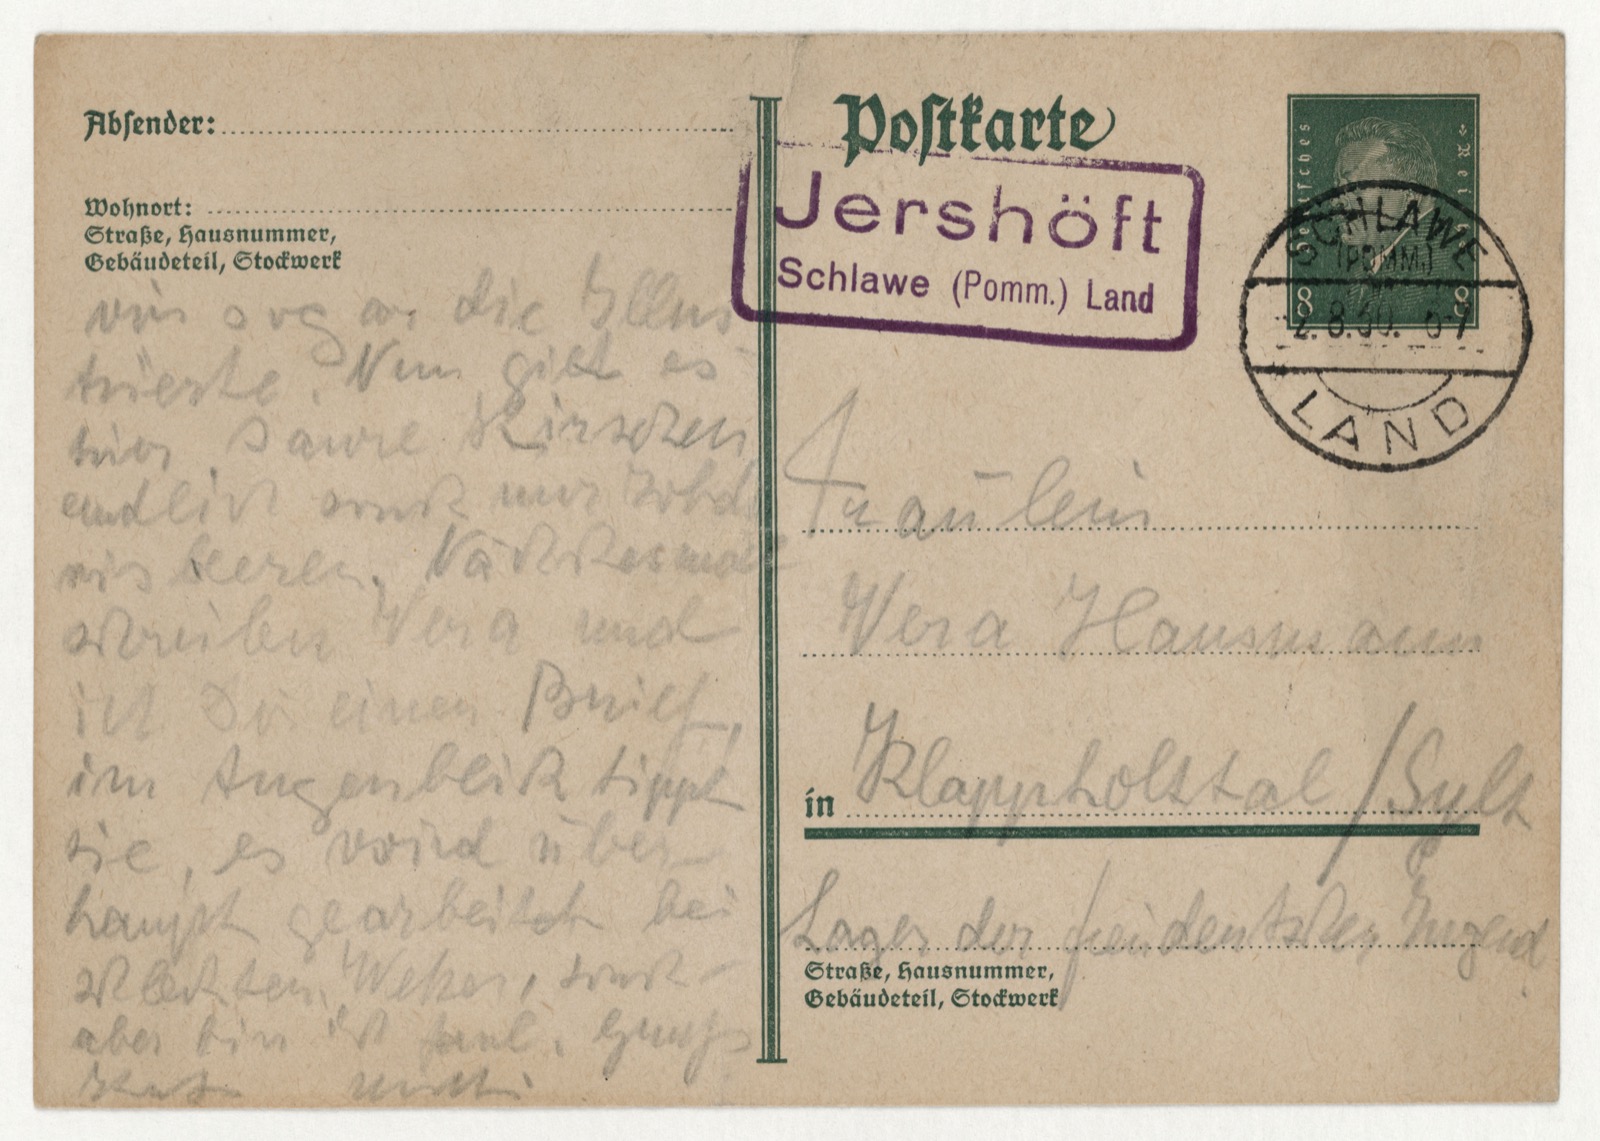 Absender:
Wohnort:
Straße, Hausnummer,
Gebäudeteil, Stockwerk
wir sogar die Illus
trierte. Nun gibt es
hier Saure Kirschen
endlich sonst nur
beeren. Nächstesmal
schreiben Vera und
ich Dir einen Brief,
im Augenblick tippt
sie, es wird über
haupt gearbeitet bei
schlechtem Wetter, sonst
aber bin ich faul. Gruß
Mutti
Postkarte
Jershöft
Schlawe (Pomm.) Land
Deutsches Reich
8 8
SCHLAWE
(POMM.)
2.8.30. 6-7
LAND
Fräulein
Vera Hausmann
in Klappholttal / Sylt
Lager der freideutschen Jugend
Straße, Hausnummer,
Gebäudeteil, Stockwerk